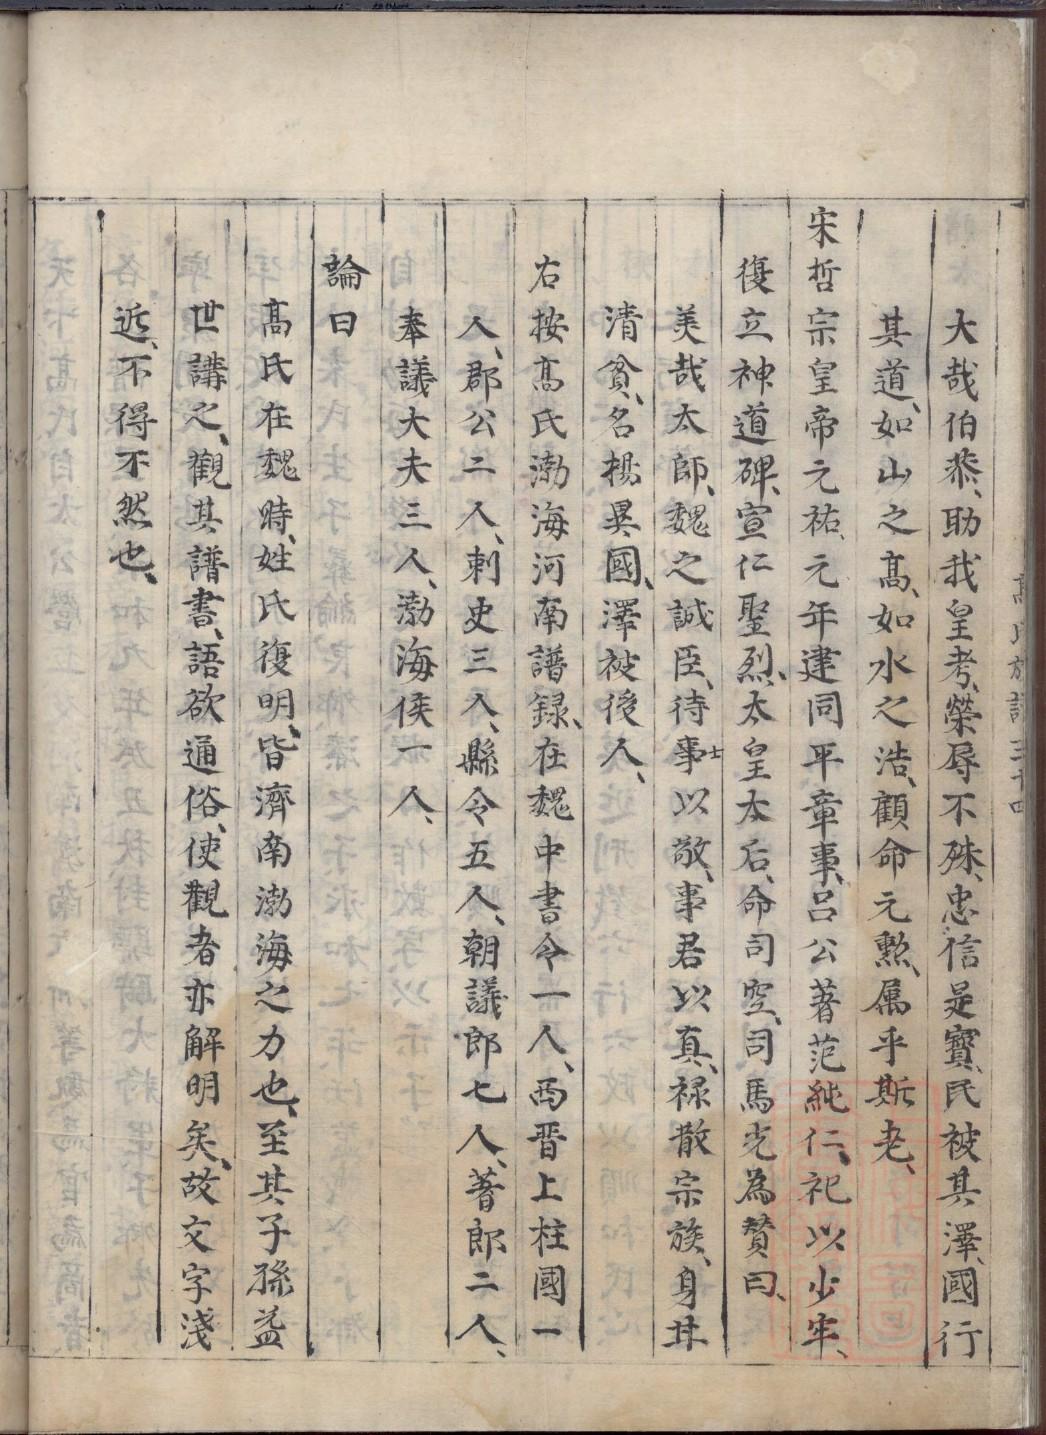 大哉伯恭、助我皇考、榮辱不殊、忠信是寶、民被其澤、國行
其道、如山之高、如水之浩、顧命元勲、属乎斯老、
宋哲宗皇帝元祐元年建同平章事、呂公著范純仁、祀以少牢、
復立神道碑、宣仁聖烈、太皇太后、命司空、司馬光為贊曰、
美哉太師、魏之誠臣、待士事以敬、事君以真、禄散宗族、身甘
清貧、名揚異國、澤被後人、
右按高氏渤海河南譜録、在魏中書令一人、西晋上柱國一
人、郡公二人、刺史三人、縣令五人、朝議郎七人、著郎二人、
奉議大夫三人、渤海侯一人、
論曰
高氏在魏時、姓氏復明、皆濟南渤海之力也、至其子孫益
世講之、觀其譜書、語欲通俗、使觀者亦解明矣、故文字淺
近、不得不然也、